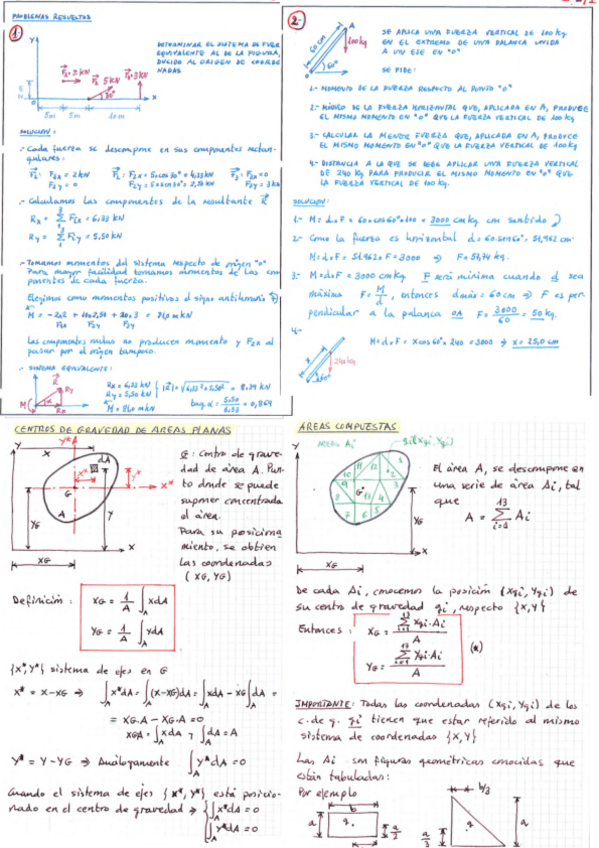 PROBLEMAS RESUELTOS
1-
DETERMINAR EL SISTEMA DE FUERZ
EQUIVALENTE AL DE LA FIGURA,
REDUCIDO AL ORIGEN DE COORDE
NADAS
Y
F1=2KN
F2 5KN
F3=3KN
30°
2m
O
X
5m
5m
10m
SOLUCIÓN:
- Cada fuerza se descompone en sus componentes rectan-
gulares:
F1: F1x = 2KN
F1y = 0
F2: F2x = 5·cos30° = 4,33KN
F2y = 5·sen30° = 2,50KN
F3: F3x = 0
F3y = 3KN
- Calculamos las componentes de la resultante R
Rx = Σ Fix = 6,33 KN
Ry = Σ Fiy = 5,50 KN
- Tomamos momentos del sistema respecto de origen "O"
Para mayor facilidad tomamos momentos de las com
ponentes de cada fuerza.
Elegimos como momentos positivos el signo antihorario
Las componentes restantes no producen momento y F2x al
pasar por el origen tampoco.
- SISTEMA EQUIVALENTE:
M
R
Ry
Rx
α
Rx = 6,33 KN
Ry = 5,50 KN
|R| = √6,33²+5,50² = 8,39 KN
tag α = 5,50/6,33 = 0,869
2-
A
60cm
100kg
60°
O
SE APLICA UNA FUERZA VERTICAL DE 100kg
EN EL EXTREMO DE UNA PALANCA UNIDA
A UN EJE EN "O"
SE PIDE:
1.- MOMENTO DE LA FUERZA RESPECTO AL PUNTO "O"
2.- MÓDULO DE LA FUERZA HORIZONTAL QUE, APLICADA EN A, PRODUCE
EL MISMO MOMENTO EN "O" QUE LA FUERZA VERTICAL DE 100kg
3- CALCULAR LA MENOR FUERZA QUE, APLICADA EN A, PRODUCE
EL MISMO MOMENTO EN "O" QUE LA FUERZA VERTICAL DE 100kg
4- DISTANCIA A LA QUE SE DEBE APLICAR UNA FUERZA VERTICAL
DE 240 kg PARA PRODUCIR EL MISMO MOMENTO EN "O" QUE
LA FUERZA VERTICAL DE 100 kg.
SOLUCIÓN:
1.- M = d·F = 60·cos60°·100 = 3000 cm·kg con sentido
2.- Como la fuerza es horizontal d = 60·sen60° = 51,962 cm
M = d·F = 51,962·F = 3000 ⇒ F = 57,74 kg.
3.- M = d·F = 3000 cm·kg F será mínima cuando d sea
máxima F = M/d, entonces dmáx = 60cm ⇒ F es per-
pendicular a la palanca OA F = 3000/60 = 50 kg.
4.-
240kg
60°
M = d·F = X·cos60°·240 = 3000 ⇒ X = 25,0 cm
CENTROS DE GRAVEDAD DE AREAS PLANAS
Y
Y*
X
dA
X*
y*
G
A
YG
y
XG
G: Centro de grave-
dad de área A. Pun-
to donde se puede
suponer concentrada
el área.
Para su posiciona
miento, se obtien
las coordenadas
(XG, YG)
Definición:
XG = 1/A ∫A x dA
YG = 1/A ∫A y dA
{X*, Y*} sistema de ejes en G
X* = X - XG ⇒ ∫A x*dA = ∫A (x-XG)dA = ∫A xdA - XG ∫A dA =
= XG·A - XG·A = 0
XG·A = ∫A xdA ; ∫A dA = A
Y* = Y - YG ⇒ Análogamente ∫A y*dA = 0
Cuando el sistema de ejes {X*, Y*} está posicio-
nado en el centro de gravedad ⇒ ∫A x*dA = 0
∫A y*dA = 0
AREAS COMPUESTAS
AREAS Ai
gi(Xgi, Ygi)
Y
G
YG
XG
X
El área A, se descompone en
una serie de área Ai, tal
que
A = Σ Ai
De cada Ai, conocemos la posición (Xgi, Ygi) de
su centro de gravedad gi, respecto {X,Y}
Entonces:
XG = Σ Xgi·Ai / A
YG = Σ Ygi·Ai / A
(*)
IMPORTANTE: Todas las coordenadas (Xgi, Ygi) de los
c. de g. gi tienen que estar referido al mismo
sistema de coordenadas {X,Y}
Las Ai son figuras geométricas conocidas que
están tabuladas:
Por ejemplo
b
b/3
a
g
a/2
a/3
g
a